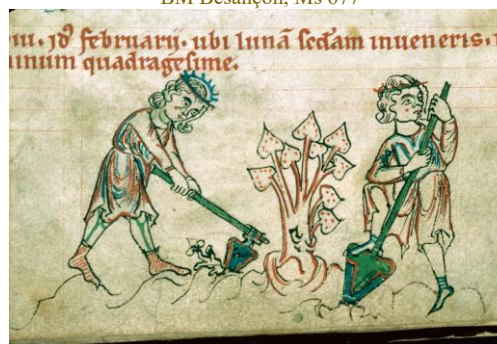 BM Besançon, Ms 677
februarij. ubi lunā scdam inueneris.
quadragesime.